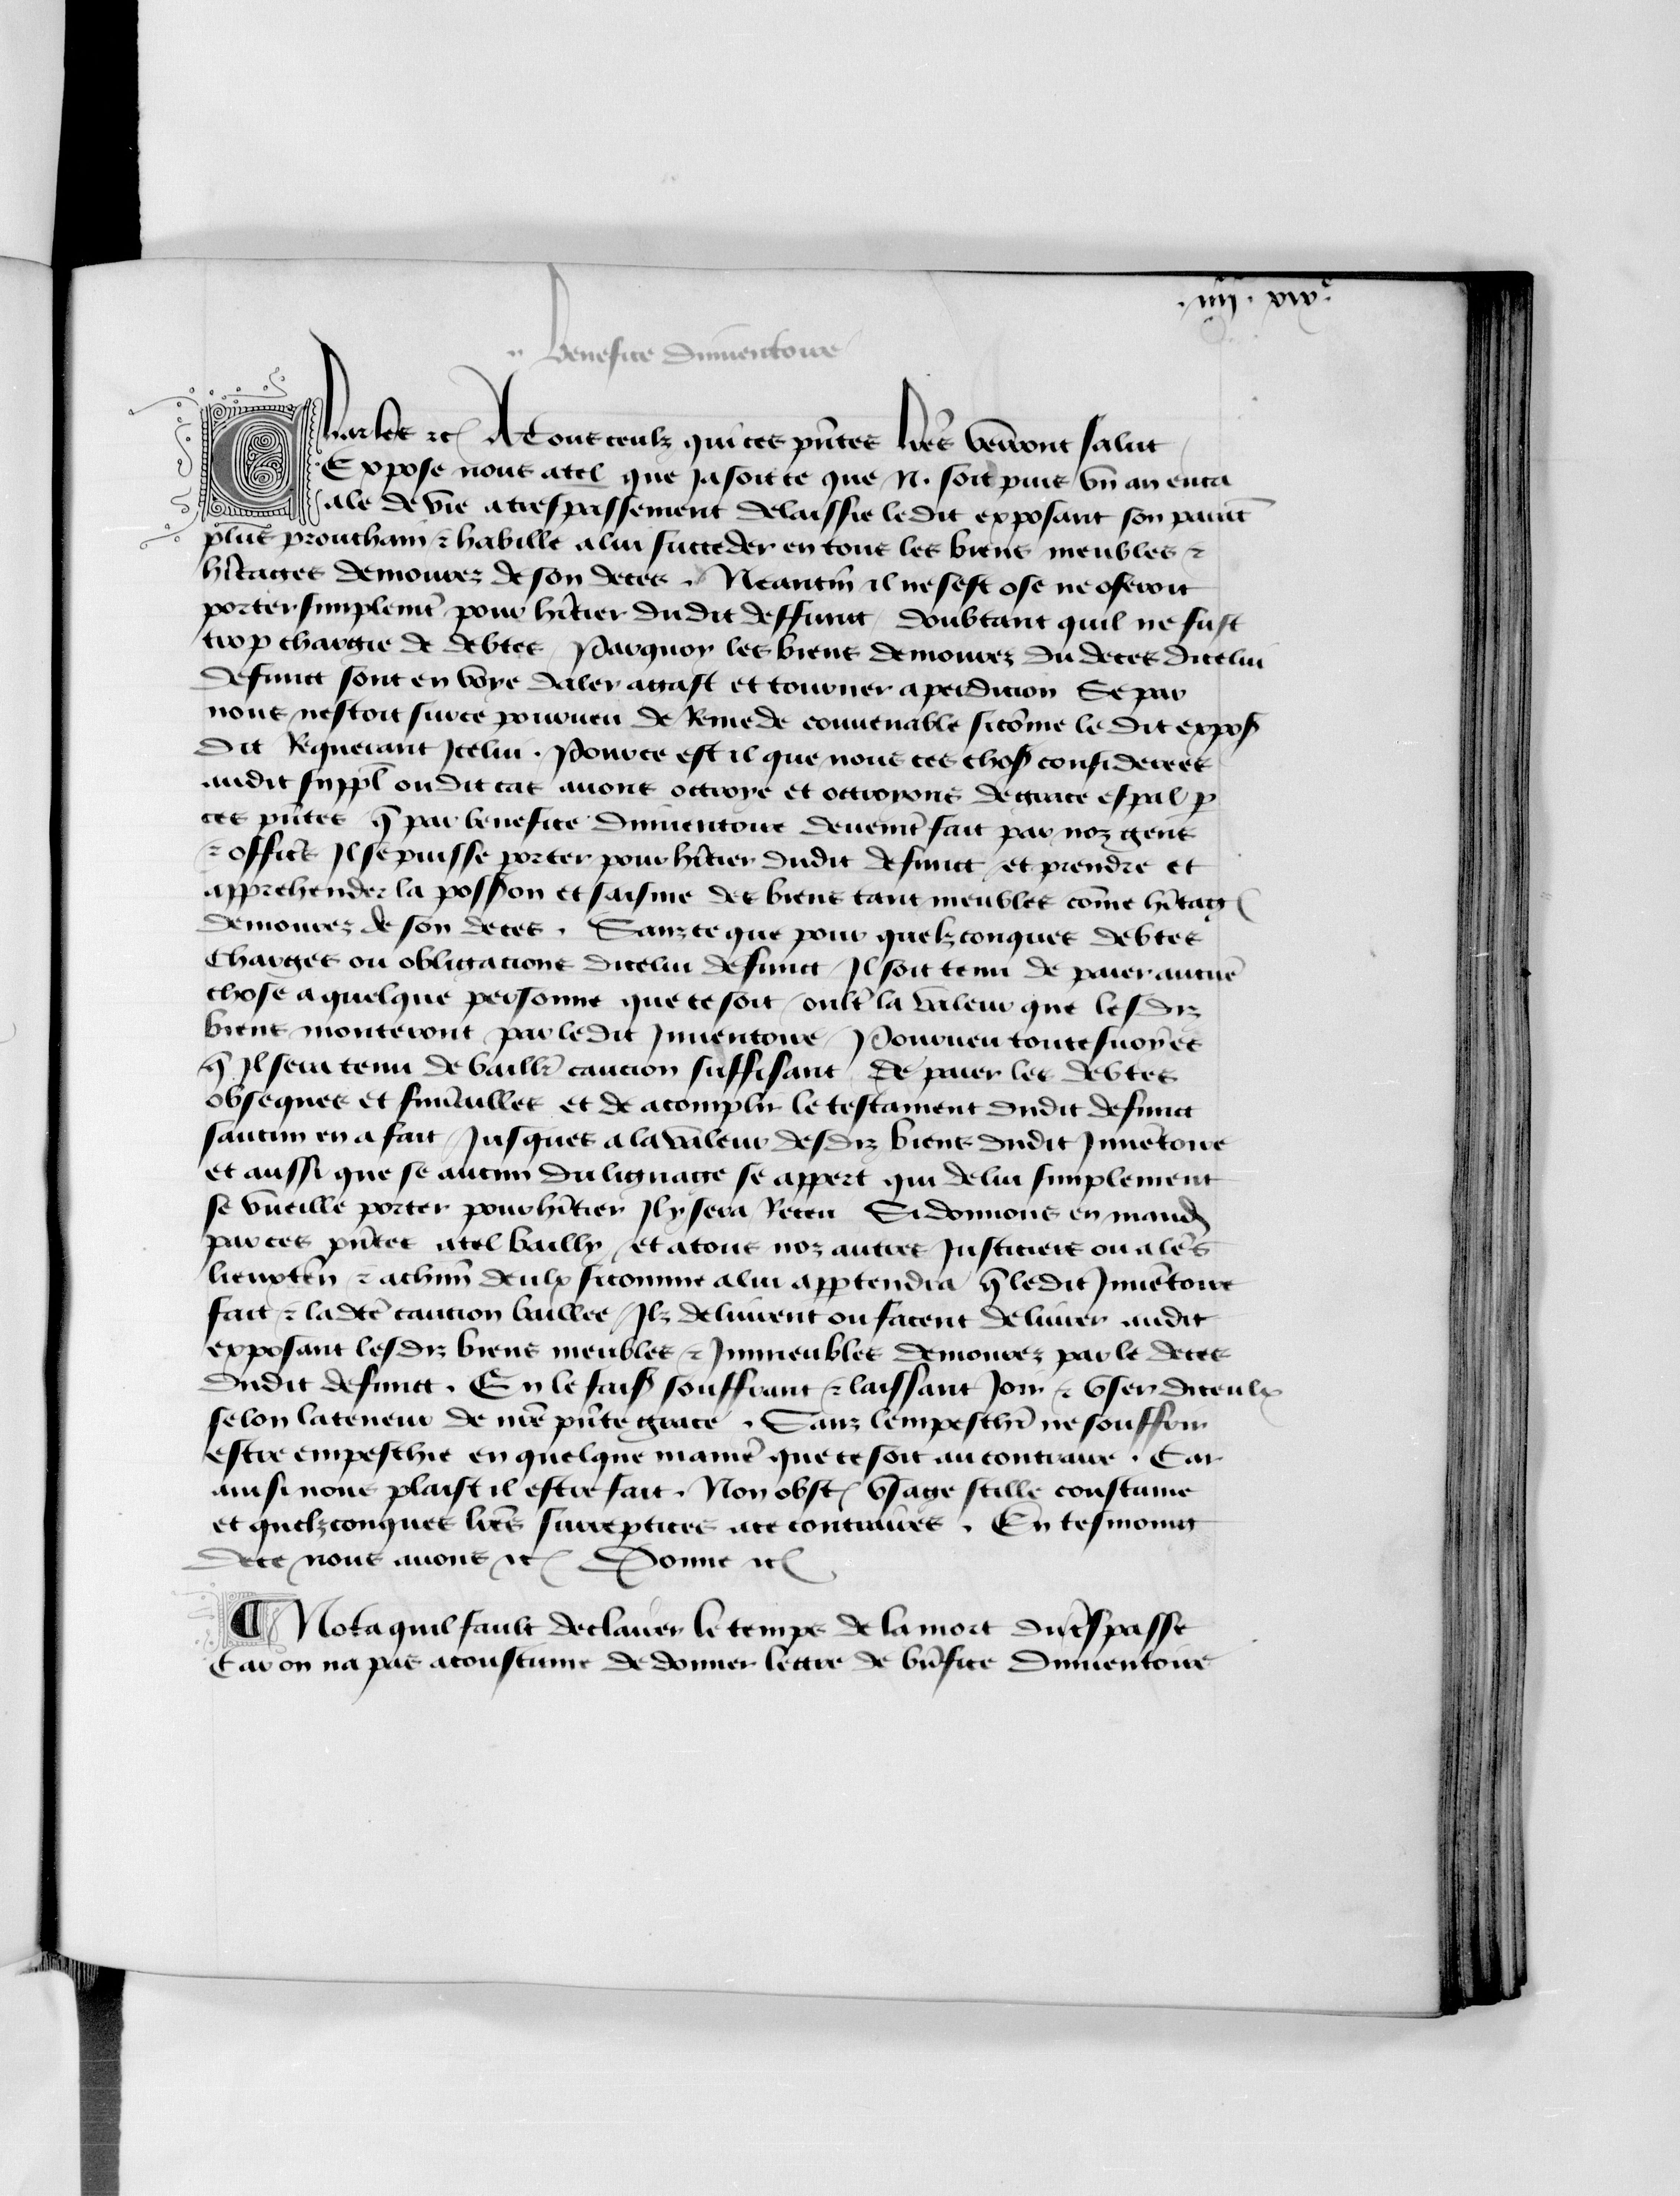 .iiij. xxv.
Benefice dinuentoire
Charles etc A tous ceulx qui ces pñtes lr̃es verront salut
Expose nous a tel que ja soit ce que N. soit puis vñ an enca
ale de vie a trespassement delaissie ledit exposant son parẽt
plus prouchain ⁊ habille a lui succeder en tous les biens meubles ⁊
hẽtages demourez de son deces . Neantm̃ il ne sest ose ne oseroit
porter simplemẽt pour hẽtier dudit deffunct doubtant quil ne fust
trop chargie de debtes Parquoy les biens demourez du deces dicelui
defunct sont en voye daler a gast et tourner a perdicion Se par
nous nestoit sur ce pourueu de Remede conuenable sicõme ledit expoſ
dit Requerant Icelui . Pource est il que nous ces choſ considerees
audit suppl̃ oudit cas auons octroye et octroyons de grace espãl p
ces pñtes q̃ par benefice dinuentoire deuemẽt fait par noz gens
⁊ offic̃s Il se puisse porter pour hẽtier dudit defunct et prendre et
apprehender la possſon et saisine des biens tant meubles cõme hẽtag
demourez de son deces . Sanz ce que pour quelzconques debtes
Charges ou obligacions dicelui defunct Il soit tenu de paier aucuẽ
chose a quelque personne que ce soit oult̃ la valeur que lesdiz
biens monteront par ledit Inuentoire Pourueu toutesuoyes
q̃ Il sera tenu de baill̃r caucion suffisant de paier les debtes
obseques et funẽrailles et de acomplir le testament dudit defunct
saucun en a fait Jusques a la valeur desdiz biens dudit Inuẽtoire
et aussi que se aucun du lignage se appert qui de lui simplement
se vueille porter pour hẽtier Il y sera Receu Si donnons en mand
par ces pñtes a tel bailly et a tous noz autres Justiciers ou a leˢs
lieuxteñ ⁊ a chun̄ deulx sicomme a lui apptendra q̃ ledit Inuẽtoire
fait ⁊ ladc̃e caucion baillee Ilz deliurent ou facent deliurer audit
exposant lesdiz biens meubles ⁊ Immeubles demourez par le deces
dudit defunct . En le faiſ souffrant ⁊ laissant Joir ⁊ vser diceulx
selon la teneur de nr̃e pñte grace . Sanz lempeschr̃ ne souffrir
estre empeschie en quelque manie᷑ que ce soit au contraire . Car
ainsi nous plaist il estre fait . Non obst vsage stille coustume
et quelzconques lr̃es surreptices a ce contraires . En tesmoing
dece nous auons etc Donne etc
¶ Nota quil fault declairer le temps de la mort du tˢspasse
Car on na pas acoustume de donner lettre de bñfice dinuentoire